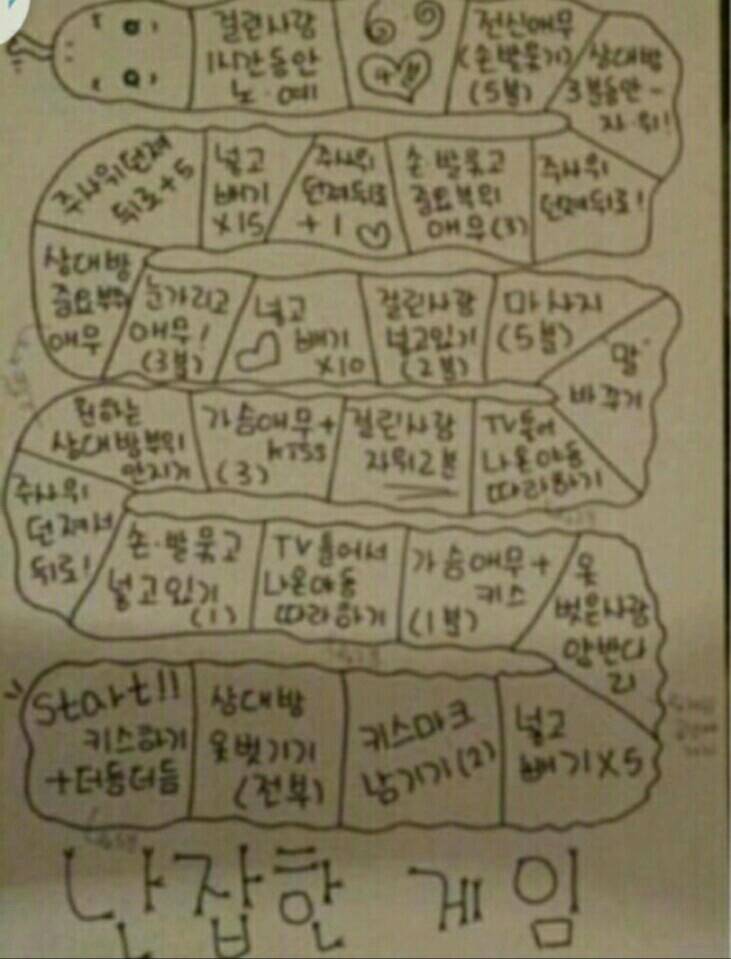 걸린사람
1시간동안
노·예
69
전신애무
(손발묶기)
(5분)
상대방
3분동안-
자·위!
주사위던져
뒤로+5
넣고
빼기
x15
주사위
던져뒤로
+1♡
손·발묶고
중요부위
애무(3)
주사위
던져뒤로!
상대방
중요부위
애무
눈가리고
애무!
(3분)
넣고
♡빼기
x10
걸린사람
넣고있기
(2분)
마사지
(5분)
"말"
바꾸기
원하는
상대방부위
만지기
가슴애무+
kiss
(3)
걸린사람
자위2분
TV틀어
나온야동
따라하기
주사위
던져서
뒤로!
손·발묶고
넣고있기
(1)
TV틀어서
나온야동
따라하기
가슴애무+
키스
(1분)
옷
벗은사람
Start!!
키스하기
+더듬더듬
상대방
옷벗기기
(전부)
키스마크
남기기(2)
넣고
빼기x5
난잡한 게임